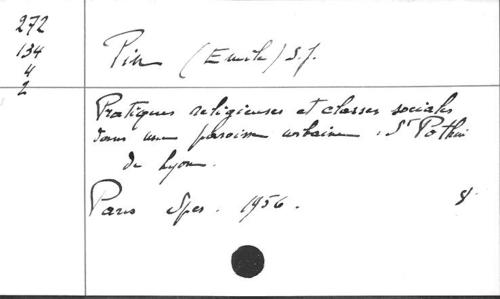 272
134
4
2
Pin (Emile) S.J.
Pratiques religieuses et classes sociales
dans une paroisse urbaine. St Pothin
de Lyon.
Paris Spes. 1956. 8°